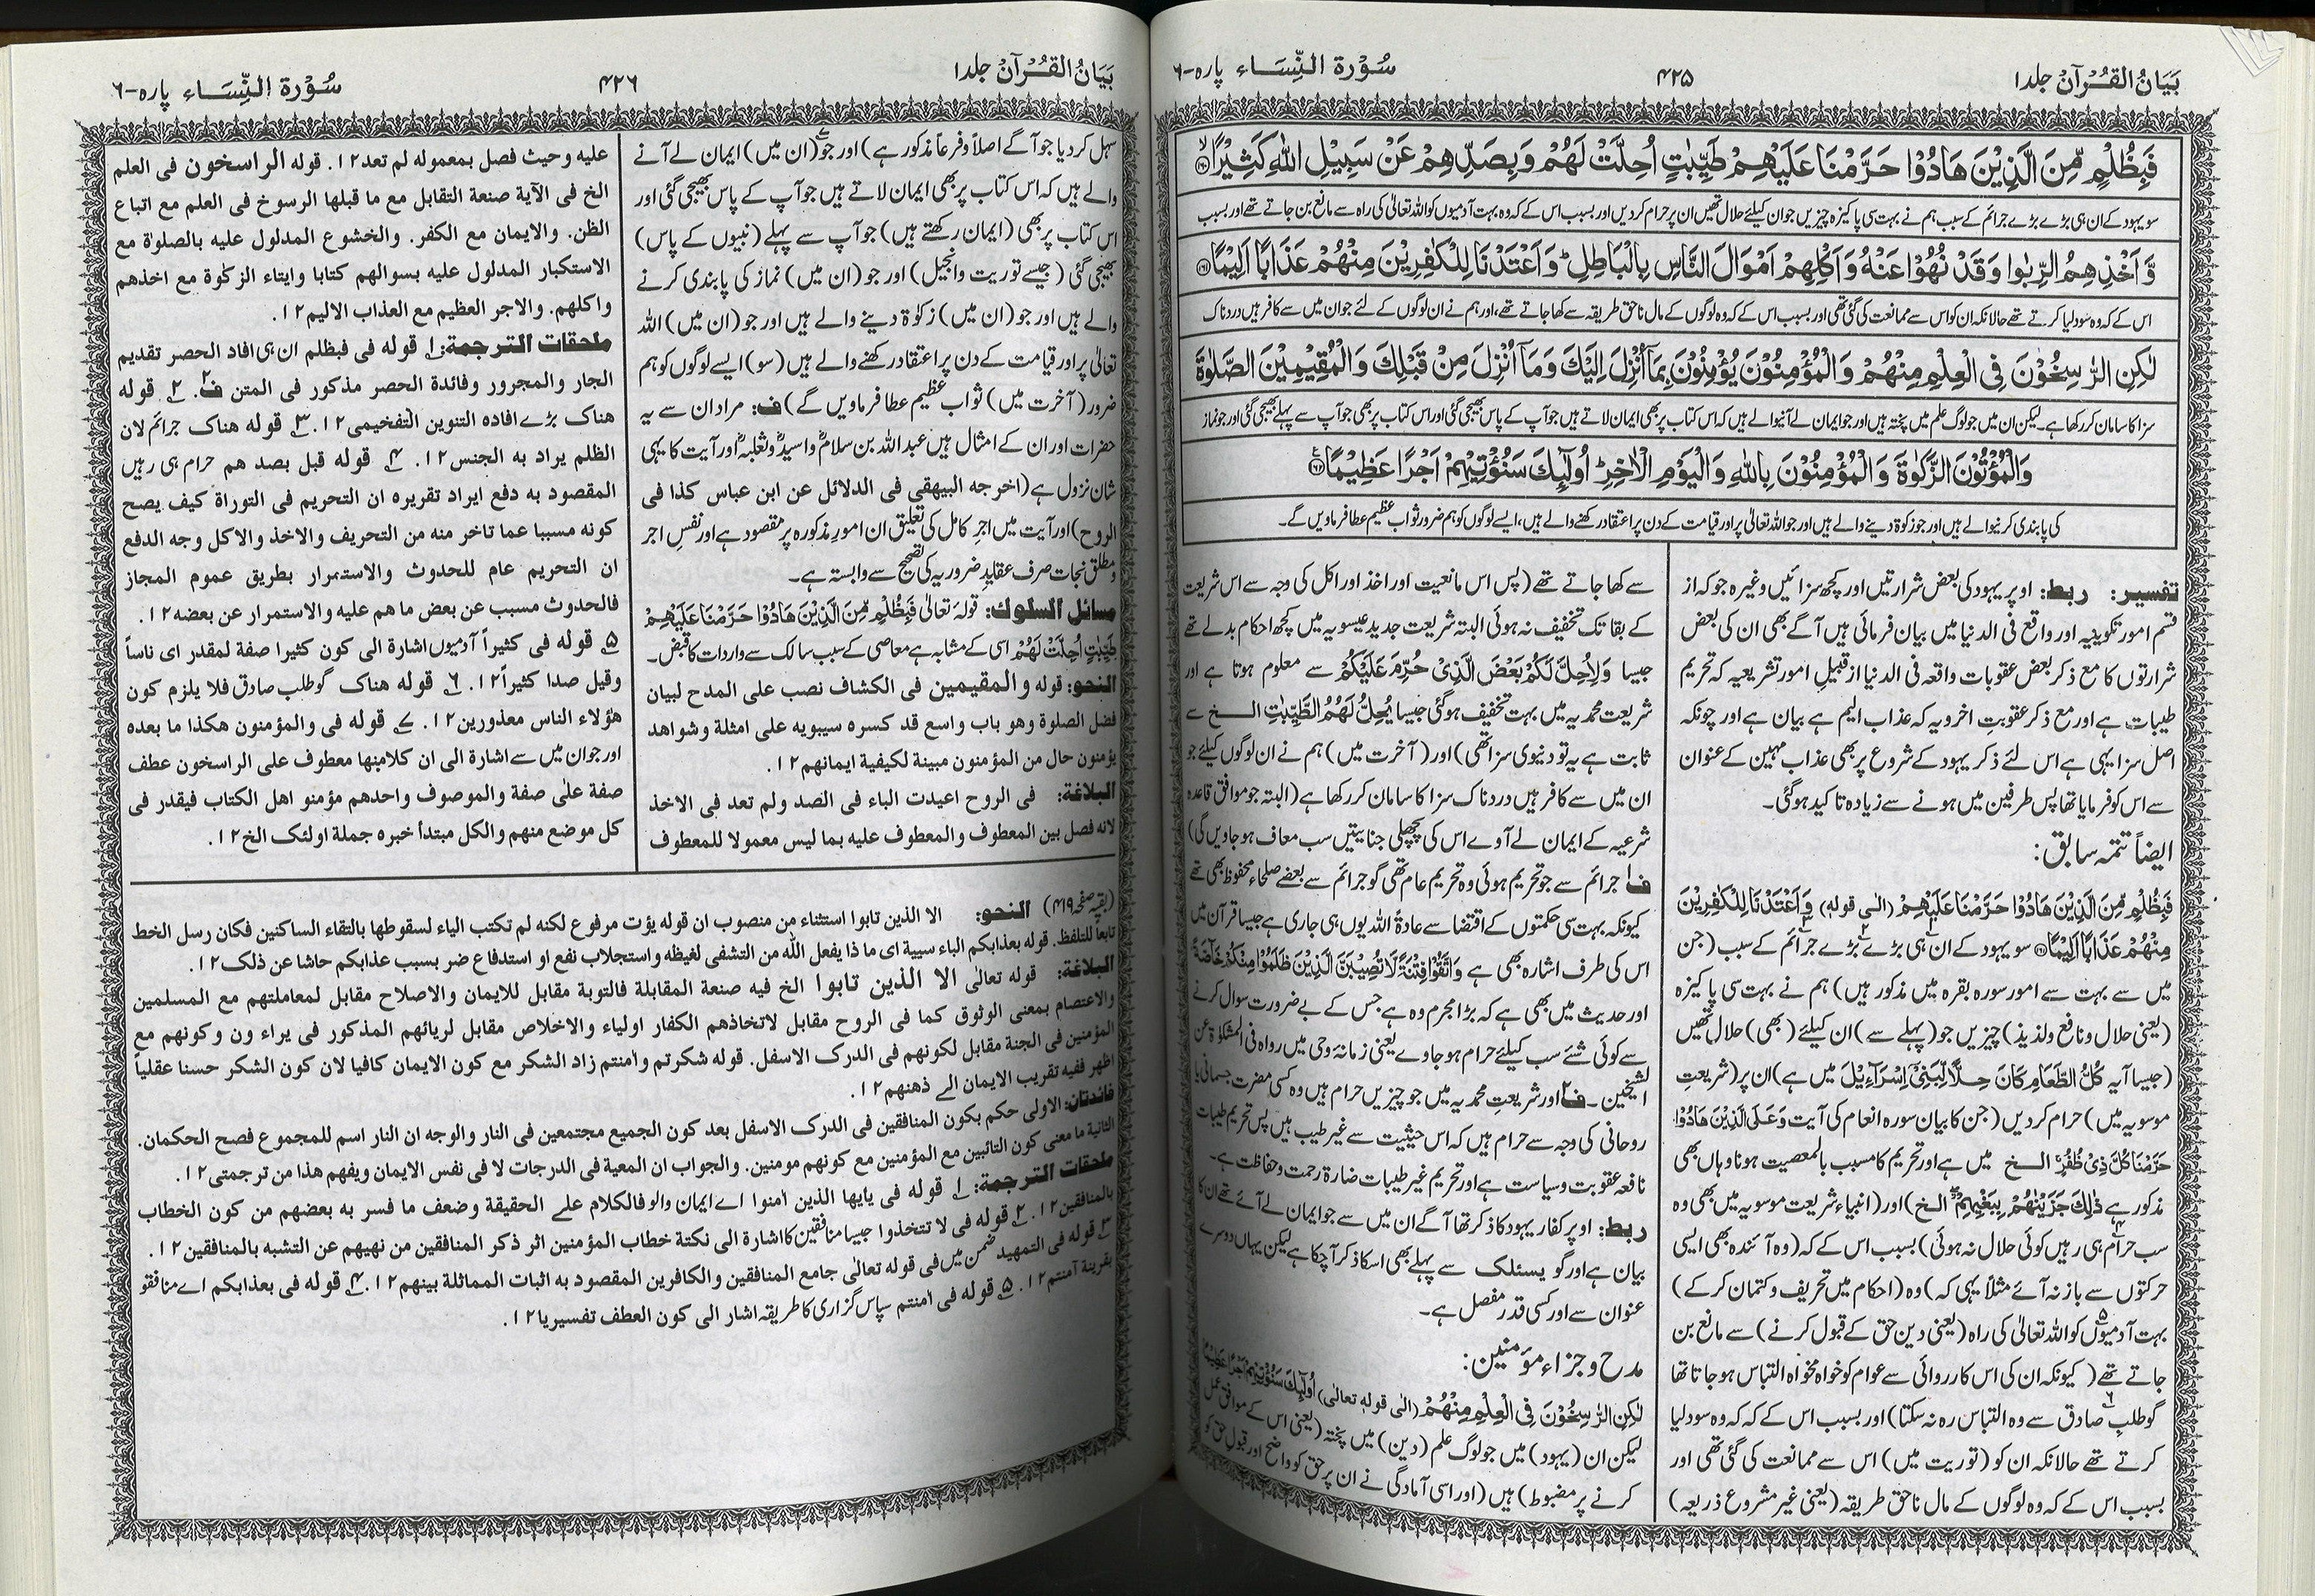 بَيَانُ القُرْآن جلد ١
۴۲۵
سُوْرَة النِّسَاء پارہ-۶
فَبِظُلْمٍ مِّنَ الَّذِيْنَ هَادُوْا حَرَّمْنَا عَلَيْهِمْ طَيِّبٰتٍ اُحِلَّتْ لَهُمْ وَبِصَدِّهِمْ عَنْ سَبِيْلِ اللّٰهِ كَثِيْرًا ۙ
سو یہود کے ان ہی بڑے بڑے جرائم کے سبب ہم نے بہت سی پاکیزہ چیزیں جو ان کیلئے حلال تھیں ان پر حرام کردیں اور بسبب اس کے کہ وہ بہت آدمیوں کو اللہ تعالیٰ کی راہ سے مانع بن جاتے تھے اور بسبب
وَّاَخْذِهِمُ الرِّبٰوا وَقَدْ نُهُوْا عَنْهُ وَاَكْلِهِمْ اَمْوَالَ النَّاسِ بِالْبَاطِلِ ؕ وَاَعْتَدْنَا لِلْكٰفِرِيْنَ مِنْهُمْ عَذَابًا اَلِيْمًا
اس کے کہ وہ سود لیا کرتے تھے حالانکہ ان کو اس سے ممانعت کی گئی تھی اور بسبب اس کے کہ وہ لوگوں کے مال ناحق طریقہ سے کھا جاتے تھے، اور ہم نے ان لوگوں کے لئے جو ان میں سے کافر ہیں دردناک
لٰكِنِ الرّٰسِخُوْنَ فِي الْعِلْمِ مِنْهُمْ وَالْمُؤْمِنُوْنَ يُؤْمِنُوْنَ بِمَاۤ اُنْزِلَ اِلَيْكَ وَمَاۤ اُنْزِلَ مِنْ قَبْلِكَ وَالْمُقِيْمِيْنَ الصَّلٰوةَ
سزا کا سامان کر رکھا ہے۔ لیکن ان میں جو لوگ علم میں پختہ ہیں اور جو ایمان لے آنیوالے ہیں کہ اس کتاب پر بھی ایمان لاتے ہیں جو آپ کے پاس بھیجی گئی اور اس کتاب پر بھی جو آپ سے پہلے بھیجی گئی اور جو نماز
وَالْمُؤْتُوْنَ الزَّكٰوةَ وَالْمُؤْمِنُوْنَ بِاللّٰهِ وَالْيَوْمِ الْاٰخِرِ ؕ اُولٰٓئِكَ سَنُؤْتِيْهِمْ اَجْرًا عَظِيْمًا
کی پابندی کرنیوالے ہیں اور جو زکوۃ دینے والے ہیں اور جو اللہ تعالیٰ پر اور قیامت کے دن پر اعتقاد رکھنے والے ہیں، ایسے لوگوں کو ہم ضرور ثواب عظیم عطا فرماویں گے۔
تفسیر: ربط: اوپر یہود کی بعض شرارتیں اور کچھ سزائیں وغیرہ جو کہ از
قسم امور تکوینیہ اور واقع فی الدنیا میں بیان فرمائی ہیں آگے بھی ان کی بعض
شرارتوں کا مع ذکر بعض عقوبات واقعہ فی الدنیا از قبیل امور تشریعیہ کہ تحریم
طیبات ہے اور مع ذکر عقوبتِ اخرویہ کہ عذاب الیم ہے بیان ہے اور چونکہ
اصل سزا یہی ہے اس لئے ذکر یہود کے شروع پر بھی عذاب مہین کے عنوان
سے اس کو فرمایا تھا پس طرفین میں ہونے سے زیادہ تاکید ہوگئی۔
ایضاً تتمہ سابق:
فَبِظُلْمٍ مِّنَ الَّذِيْنَ هَادُوْا حَرَّمْنَا عَلَيْهِمْ (الٰی قولہٖ) وَاَعْتَدْنَا لِلْكٰفِرِيْنَ
مِنْهُمْ عَذَابًا اَلِيْمًا سو یہود کے ان ہی بڑے بڑے جرائم کے سبب (جن
میں سے بہت سے امور سورہ بقرہ میں مذکور ہیں) ہم نے بہت سی پاکیزہ
(یعنی حلال و نافع ولذیذ) چیزیں جو (پہلے سے) ان کیلئے (بھی) حلال تھیں
(جیسا آیہ كُلُّ الطَّعَامِ كَانَ حِلًّا لِّبَنِيْٓ اِسْرَآءِيْلَ میں ہے) ان پر (شریعتِ
موسویہ میں) حرام کردیں (جن کا بیان سورہ انعام کی آیت وَعَلَى الَّذِيْنَ هَادُوْا
حَرَّمْنَا كُلَّ ذِيْ ظُفُرٍ الخ میں ہے اور تحریم کا مسبب بالمعصیت ہونا وہاں بھی
مذکور ہے ذٰلِكَ جَزَيْنٰهُمْ بِبَغْيِهِمْ الخ) اور (انبیاء شریعت موسویہ میں بھی وہ
سب حرام ہی رہیں کوئی حلال نہ ہوئی) بسبب اس کے کہ (وہ آئندہ بھی ایسی
حرکتوں سے باز نہ آئے مثلاً یہی کہ) وہ (احکام میں تحریف وکتمان کر کے)
بہت آدمیوں ۵ کو اللہ تعالیٰ کی راہ (یعنی دین حق کے قبول کرنے) سے مانع بن
جاتے تھے (کیونکہ ان کی اس کارروائی سے عوام کو خواہ مخواہ التباس ہوجاتا تھا
گو طلب ۶ صادق سے وہ التباس رہ نہ سکتا) اور بسبب اس کے کہ کہ وہ سود لیا
کرتے تھے حالانکہ ان کو (توریت میں) اس سے ممانعت کی گئی تھی اور
بسبب اس کے کہ وہ لوگوں کے مال ناحق طریقہ (یعنی غیر مشروع ذریعہ)
سے کھا جاتے تھے (پس اس مانعیت اور اخذ اور اکل کی وجہ سے اس شریعت
کے بقا تک تخفیف نہ ہوئی البتہ شریعت جدید عیسویہ میں کچھ احکام بدلے تھے
جیسا وَلِاُحِلَّ لَكُمْ بَعْضَ الَّذِيْ حُرِّمَ عَلَيْكُمْ سے معلوم ہوتا ہے اور
شریعت محمدیہ میں بہت تخفیف ہوگئی جیسا يُحِلُّ لَهُمُ الطَّيِّبٰتِ الخ سے
ثابت ہے یہ تو دنیوی سزا تھی) اور (آخرت میں) ہم نے ان لوگوں کیلئے جو
ان میں سے کافر ہیں دردناک سزا کا سامان کر رکھا ہے (البتہ جو موافق قاعدہ
شرعیہ کے ایمان لے آوے اس کی پچھلی جنایتیں سب معاف ہوجاویں گی)
ف۱ جرائم سے جو تحریم ہوئی وہ تحریم عام تھی گو جرائم سے بعضے صلحاء محفوظ بھی تھے
کیونکہ بہت سی حکمتوں کے اقتضا سے عادۃ اللہ یوں ہی جاری ہے جیسا قرآن میں
اس کی طرف اشارہ بھی ہے وَاتَّقُوْا فِتْنَةً لَّا تُصِيْبَنَّ الَّذِيْنَ ظَلَمُوْا مِنْكُمْ خَآصَّةً
اور حدیث میں بھی ہے کہ بڑا مجرم وہ ہے جس کے بے ضرورت سوال کرنے
سے کوئی شئے سب کیلئے حرام ہوجاوے یعنی زمانۂ وحی میں رواہ فی المشکٰوۃ عن
الشیخین۔ ف۲ اور شریعتِ محمدیہ میں جو چیزیں حرام ہیں وہ کسی مضرت جسمانی یا
روحانی کی وجہ سے حرام ہیں کہ اس حیثیت سے غیر طیب ہیں پس تحریم طیبات
نافعہ عقوبت وسیاست ہے اور تحریم غیر طیبات ضارۃ رحمت وحفاظت ہے۔
ربط: اوپر کفار یہود کا ذکر تھا آگے ان میں سے جو ایمان لے آئے تھے ان کا
بیان ہے اور گو یسئلک سے پہلے بھی اسکا ذکر آچکا ہے لیکن یہاں دوسرے
عنوان سے اور کسی قدر مفصل ہے۔
مدح وجزاء مؤمنین:
لٰكِنِ الرّٰسِخُوْنَ فِي الْعِلْمِ مِنْهُمْ (الٰی قولہ تعالٰی) اُولٰٓئِكَ سَنُؤْتِيْهِمْ اَجْرًا عَظِيْمًا
لیکن ان (یہود) میں جو لوگ علم (دین) میں پختہ (یعنی اس کے موافق عمل
کرنے پر مضبوط) ہیں (اور اسی آمادگی نے ان پر حق کو واضح اور قبول حق کو
بَيَانُ القُرْآن جلد ١
۴۲۶
سُوْرَة النِّسَاء پارہ-۶
سہل کردیا جو آگے اصلاً وفرعاً مذکور ہے) اور جو (ان میں) ایمان لے آنے
والے ہیں کہ اس کتاب پر بھی ایمان لاتے ہیں جو آپ کے پاس بھیجی گئی اور
اس کتاب پر بھی (ایمان رکھتے ہیں) جو آپ سے پہلے (نبیوں کے پاس)
بھیجی گئی (جیسے توریت وانجیل) اور جو (ان میں) نماز کی پابندی کرنے
والے ہیں اور جو (ان میں) زکوۃ دینے والے ہیں اور جو (ان میں) اللہ
تعالیٰ پر اور قیامت کے دن پر اعتقاد رکھنے والے ہیں (سو) ایسے لوگوں کو ہم
ضرور (آخرت میں) ثواب عظیم عطا فرماویں گے) ف: مراد ان سے یہ
حضرات اور ان کے امثال ہیں عبد اللہ بن سلام واسید وثعلبہ اور آیت کا یہی
شان نزول ہے (اخرجه البيهقى فى الدلائل عن ابن عباس كذا فى
الروح) اور آیت میں اجر کامل کی تعلیق ان امورِ مذکورہ پر مقصود ہے اور نفس اجر
ومطلق نجات صرف عقایدِ ضروریہ کی تصحیح سے وابستہ ہے۔
مسائل السلوك: قولہ تعالیٰ فَبِظُلْمٍ مِّنَ الَّذِيْنَ هَادُوْا حَرَّمْنَا عَلَيْهِمْ
طَيِّبٰتٍ اُحِلَّتْ لَهُمْ اسی کے مشابہ ہے معاصی کے سبب سالک سے واردات کا قبض۔
النحو: قوله والمقيمين فى الكشاف نصب على المدح لبيان
فضل الصلوة وهو باب واسع قد كسره سيبويه على امثلة وشواهد
يؤمنون حال من المؤمنون مبينة لكيفية ايمانهم١٢.
البلاغة: فى الروح اعيدت الباء فى الصد ولم تعد فى الاخذ
لانه فصل بين المعطوف والمعطوف عليه بما ليس معمولا للمعطوف
عليه وحيث فصل بمعموله لم تعد١٢. قوله الراسخون فى العلم
الخ فى الآية صنعة التقابل مع ما قبلها الرسوخ فى العلم مع اتباع
الظن. والايمان مع الكفر. والخشوع المدلول عليه بالصلوٰة مع
الاستكبار المدلول عليه بسوالهم كتابا وايتاء الزكوٰة مع اخذهم
واكلهم. والاجر العظيم مع العذاب الاليم١٢.
ملحقات الترجمة: ١ قوله فى فبظلم ان ہی افاد الحصر تقديم
الجار والمجرور وفائدة الحصر مذكور فى المتن ف٢. ٢ قوله
هناك بڑے افاده التنوين التفخيمى١٢. ٣ قوله هناك جرائم لان
الظلم يراد به الجنس١٢. ۴ قوله قبل بصد هم حرام ہی رہیں
المقصود به دفع ايراد تقريره ان التحريم فى التوراة كيف يصح
كونه مسببا عما تاخر منه من التحريف والاخذ والاكل وجه الدفع
ان التحريم عام للحدوث والاستمرار بطريق عموم المجاز
فالحدوث مسبب عن بعض ما هم عليه والاستمرار عن بعضه١٢.
۵ قوله فى كثيراً آدمیوں اشارة الى كون كثيرا صفة لمقدر اى ناساً
وقيل صدا كثيراً١٢. ۶ قوله هناك گو طلب صادق فلا يلزم كون
هؤلاء الناس معذورين١٢. ۷ قوله فى والمؤمنون هكذا ما بعده
اور جو ان میں سے اشارة الى ان كلامنها معطوف على الراسخون عطف
صفة علىٰ صفة والموصوف واحدهم مؤمنو اهل الكتاب فيقدر فى
كل موضع منهم والكل مبتدأ خبره جملة اولئك الخ١٢.
(بقیہ صفحہ ۴۱۹) النحو: الا الذين تابوا استثناء من منصوب ان قوله يؤت مرفوع لكنه لم تكتب الياء لسقوطها بالتقاء الساكنين فكان رسل الخط
تابعا للتلفظ. قوله بعذابكم الباء سببية اى ما ذا يفعل الله من التشفى لغيظه واستجلاب نفع او استدفاع ضر بسبب عذابكم حاشا عن ذلك١٢.
البلاغة: قوله تعالى الا الذين تابوا الخ فيه صنعة المقابلة فالتوبة مقابل للايمان والاصلاح مقابل لمعاملتهم مع المسلمين
والاعتصام بمعنى الوثوق كما فى الروح مقابل لاتخاذهم الكفار اولياء والاخلاص مقابل لريائهم المذكور فى يراء ون وكونهم مع
المؤمنين فى الجنة مقابل لكونهم فى الدرك الاسفل. قوله شكرتم وآمنتم زاد الشكر مع كون الايمان كافيا لان كون الشكر حسنا عقلياً
اظهر ففيه تقريب الايمان الى ذهنهم١٢.
فائدتان: الاولى حكم بكون المنافقين فى الدرك الاسفل بعد كون الجميع مجتمعين فى النار والوجه ان النار اسم للمجموع فصح الحكمان.
الثانية ما معنى كون التائبين مع المؤمنين مع كونهم مومنين. والجواب ان المعية فى الدرجات لا فى نفس الايمان ويفهم هذا من ترجمتى١٢.
ملحقات الترجمة: ١ قوله فى يايها الذين آمنوا اے ایمان والو فالكلام على الحقيقة وضعف ما فسر به بعضهم من كون الخطاب
بالمنافقين١٢. ٢ قوله فى لا تتخذوا جیسا منافقین کا اشارة الى نكتة خطاب المؤمنين اثر ذكر المنافقين من نهيهم عن التشبه بالمنافقين١٢.
٣ قوله فى التمهيد ضمن میں فى قوله تعالى جامع المنافقين والكافرين المقصود به اثبات المماثلة بينهم١٢. ۴ قوله فى بعذابكم اے منافقو
بقرينة آمنتم١٢. ۵ قوله فى آمنتم سپاس گزاری کا طریقہ اشار الى كون العطف تفسيريا١٢.